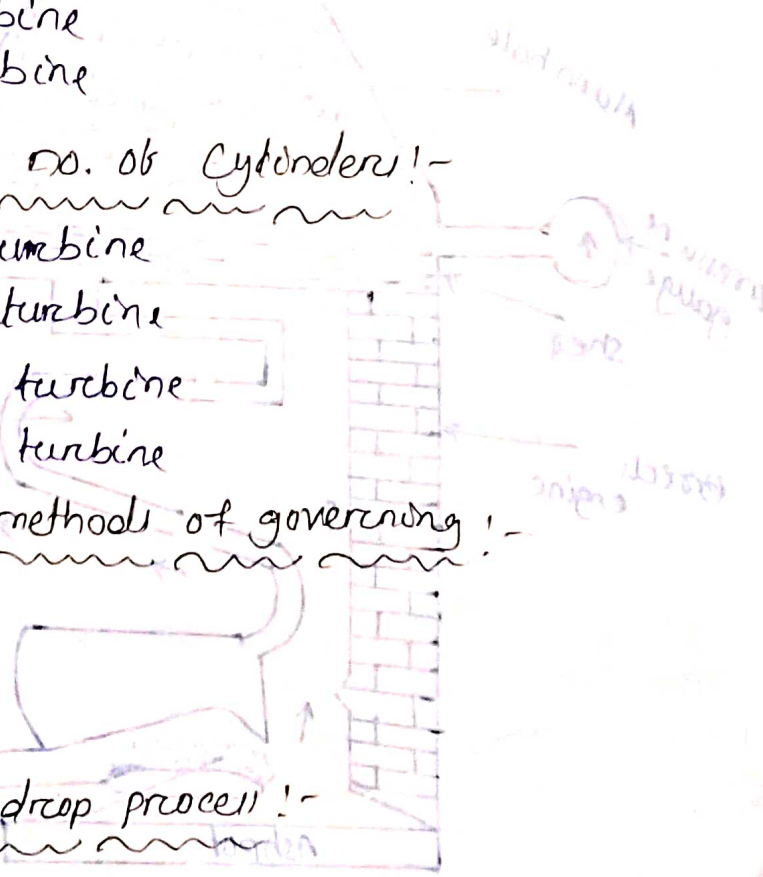 bine
bine
no. of Cylinders:-
urbine
turbine
turbine
turbine
methods of governing :-
drop process :-